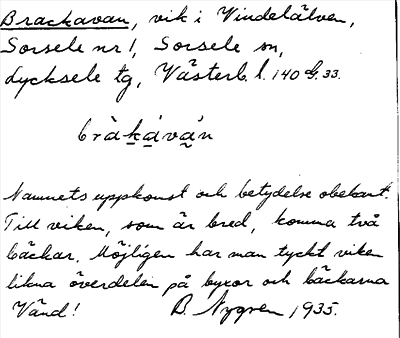 Brackavan, vik i Vindelälven,
Sorsele nr 1, Sorsele sn,
Lycksele tg, Västerb. l. 140 G. 33.
bràkáván
Namnets uppkomst och betydelse obekant.
Till viken, som är bred, komma två
bäckar. Möjligen har man tyckt viken
likna överdelen på byxor och bäckarna
Vänd! B. Nygren 1935.